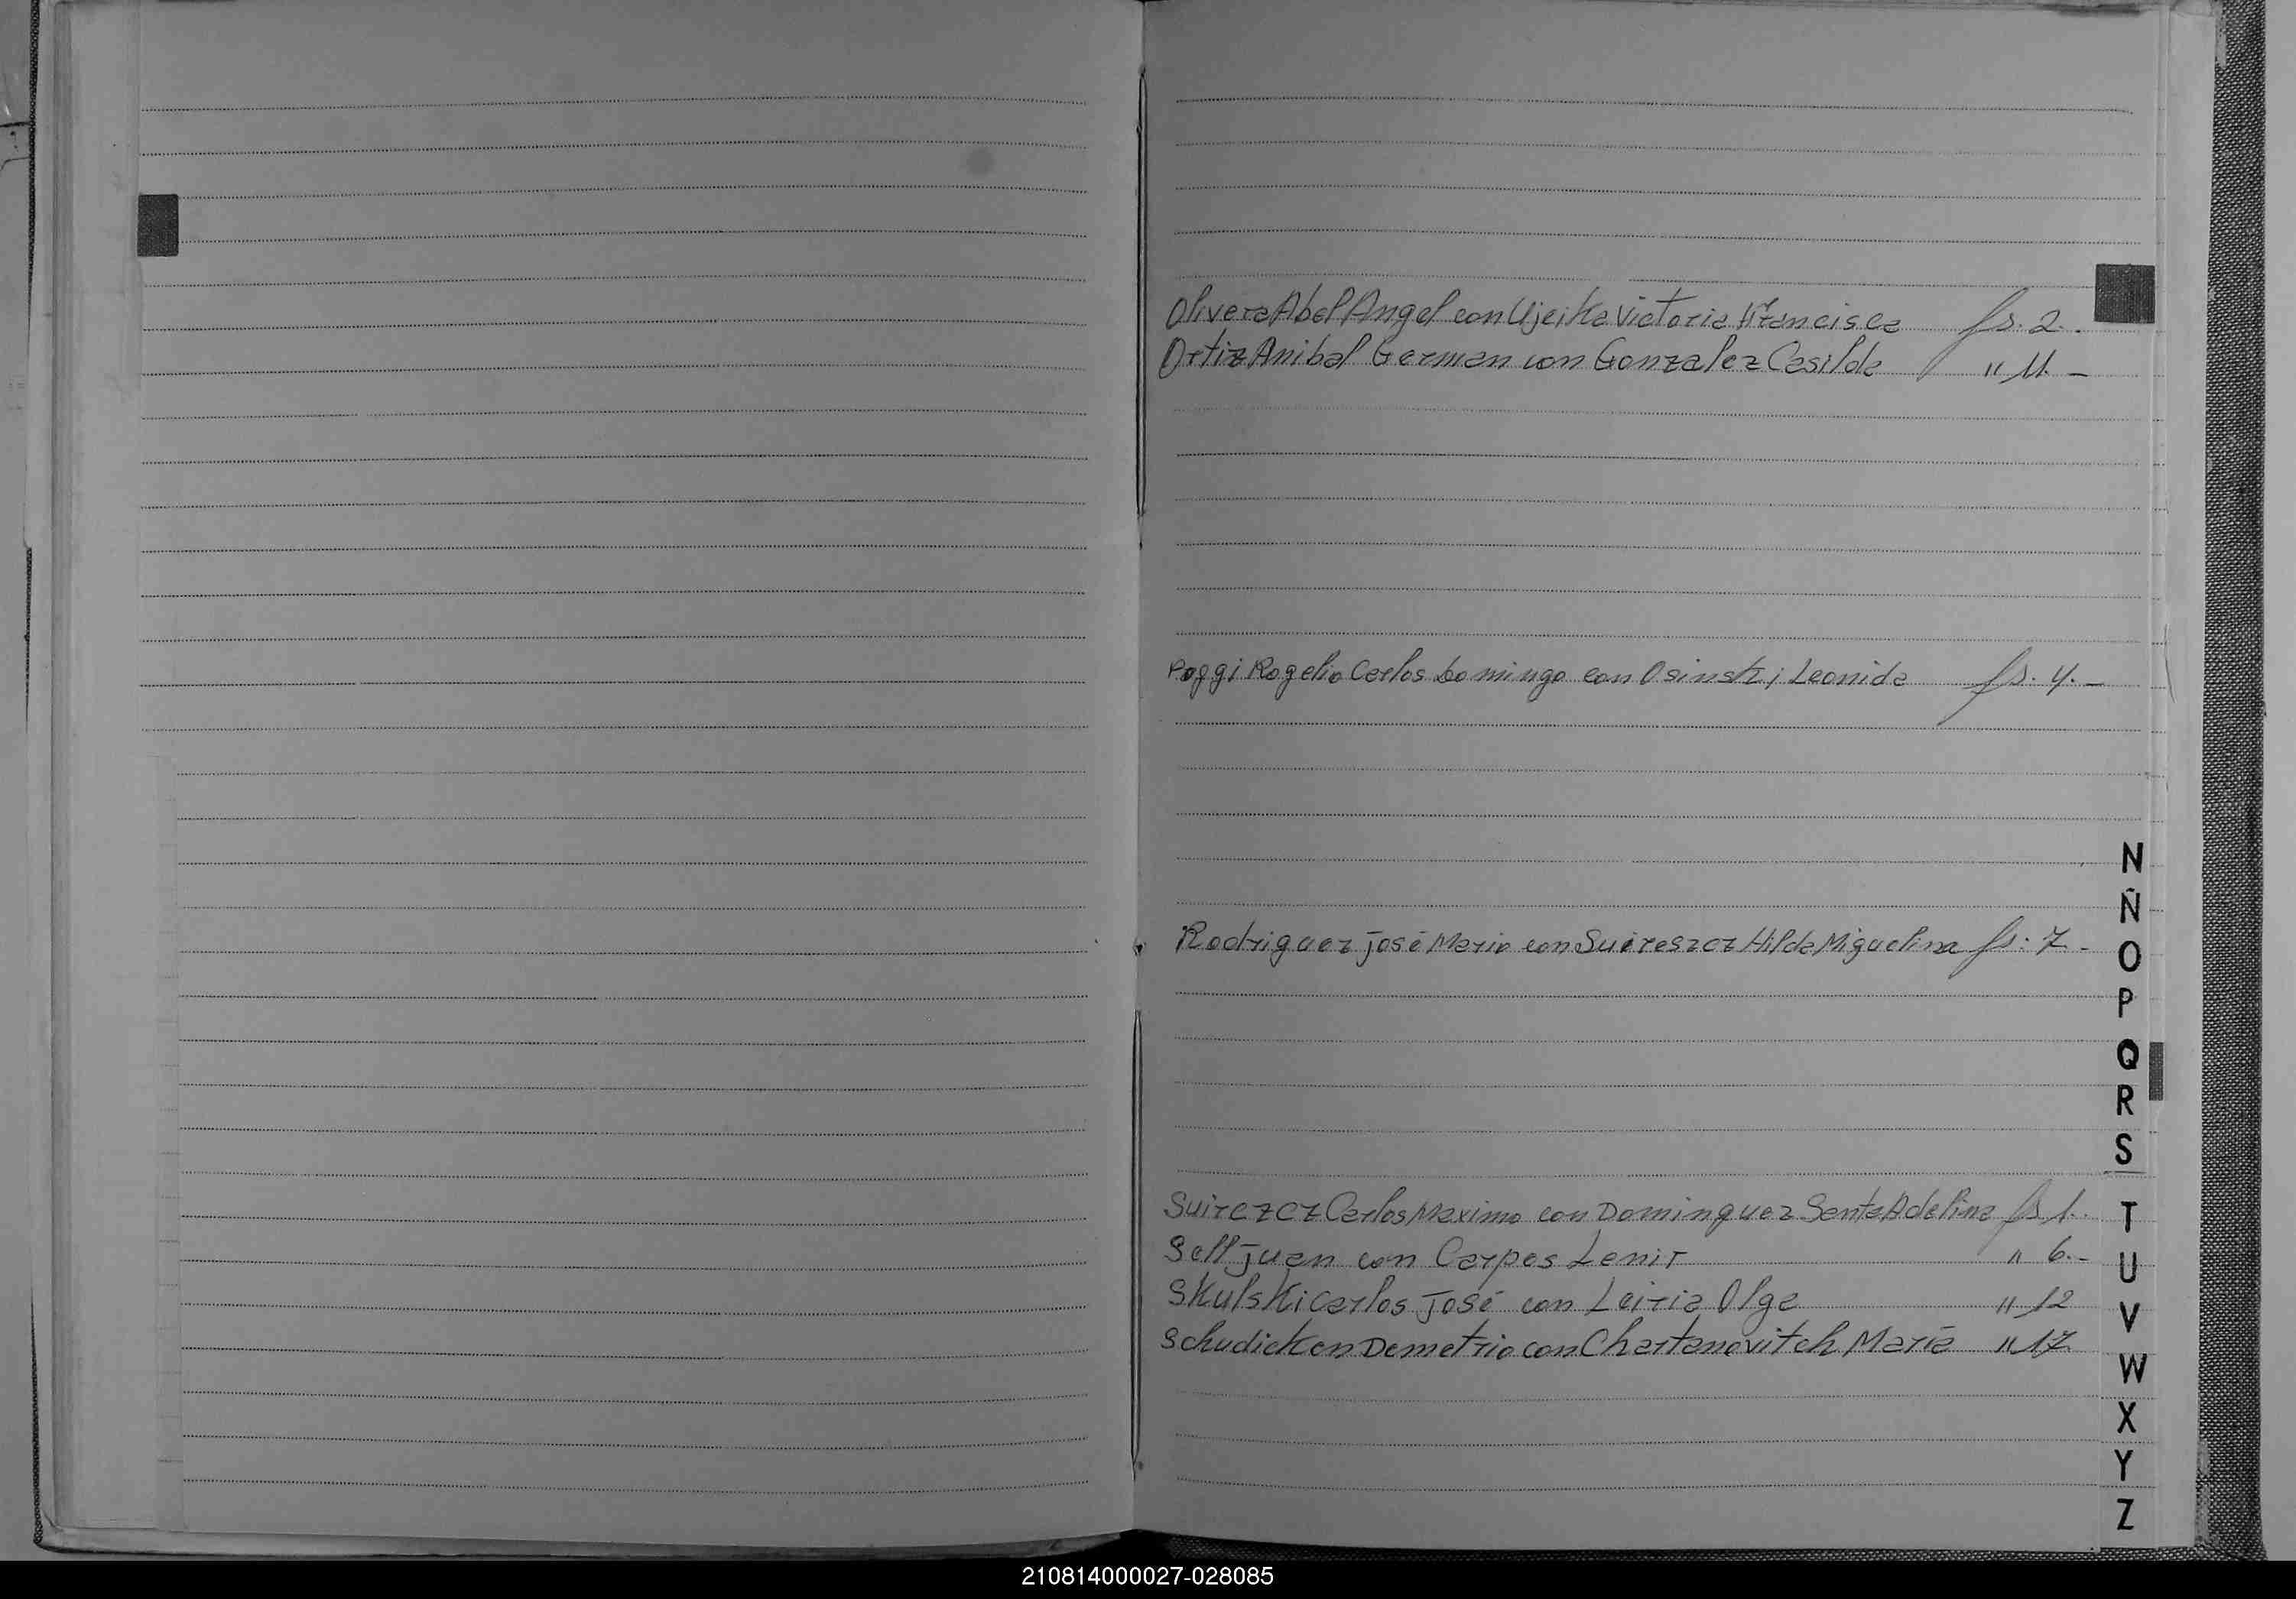 Olivera Abel Angel con Ujeika Victoria Francisca fs. 2.
Ortiz Anibal German con Gonzalez Casilda " 11. -
Poggi Rogelio Carlos Domingo con Osinski Leonida fs. 4. -
Rodriguez José Mario con Suireszcz Hilda Miguelina fs: 7 -
Suirezcz Carlos Maximo con Dominguez Santa Adelina fs 1.
Sell Juan con Carpes Lenir " 6. -
Skulski Carlos José con Leiria Olga " 12
Schudicken Demetrio con Chartanovitch Maria " 17.
N
Ñ
O
P
Q
R
S
T
U
V
W
X
Y
Z
210814000027-028085